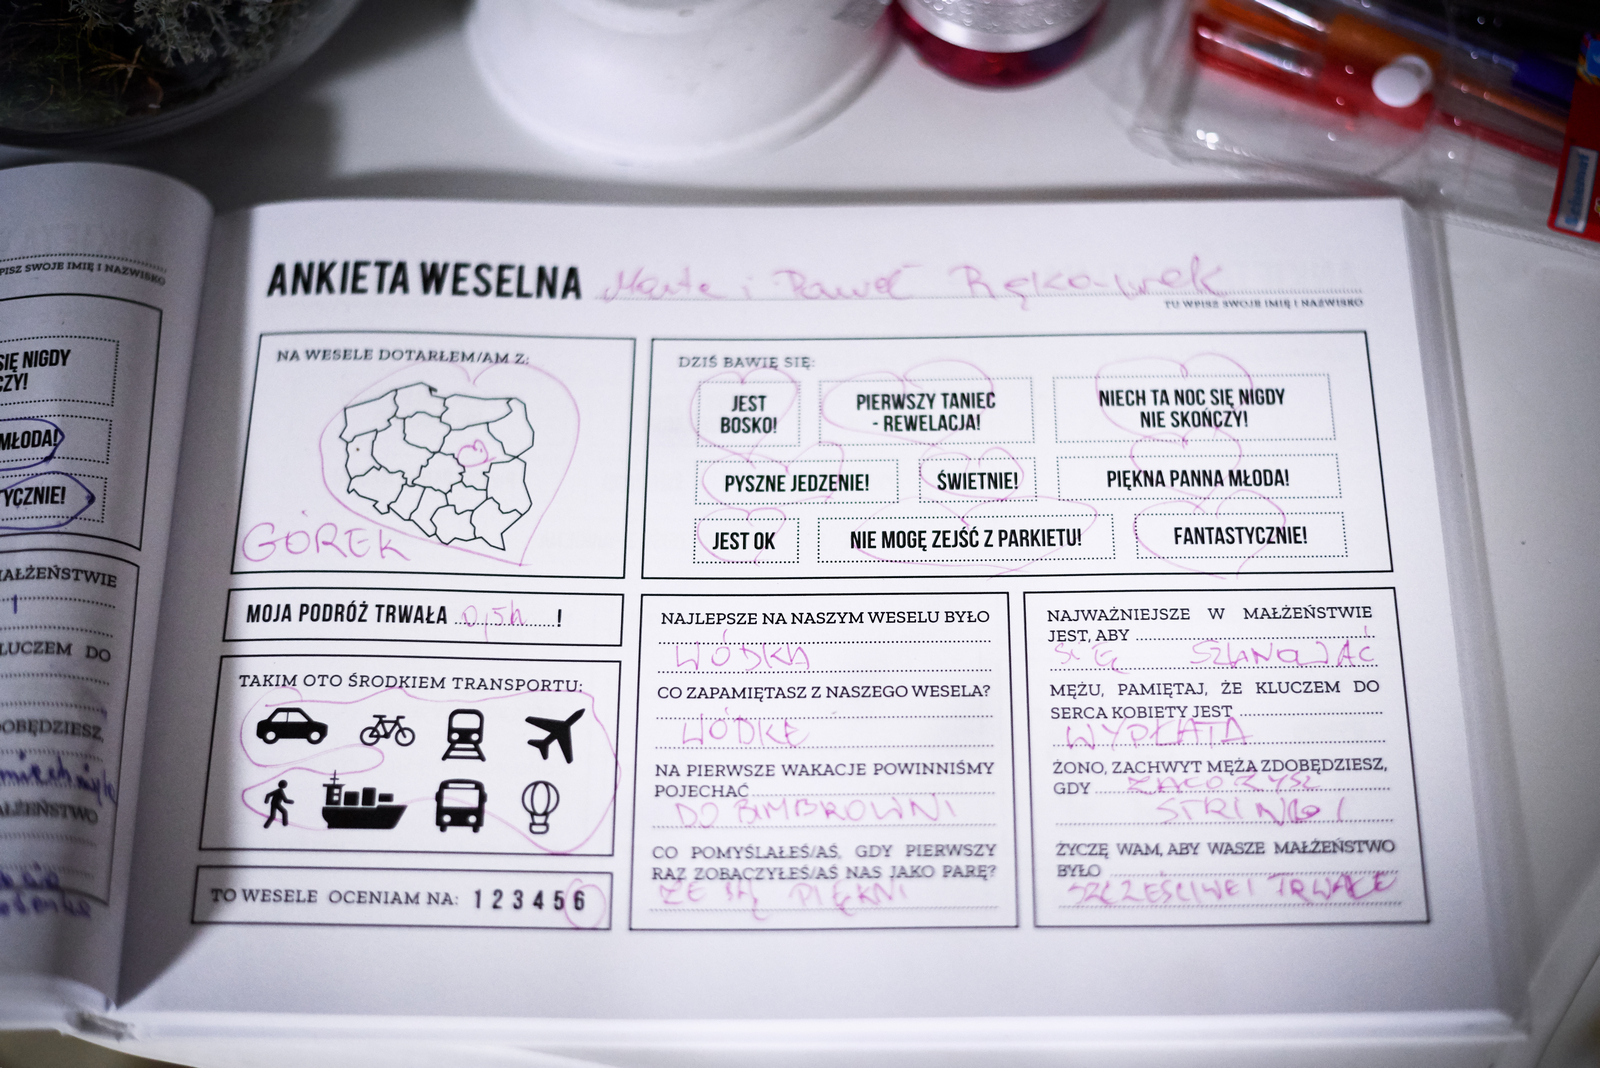 PISZ SWOJE IMIĘ I NAZWISKO
SIĘ NIGDY
CZY!
MŁODA!
TYCZNIE!
MAŁŻEŃSTWIE
LUCZEM DO
DOBĘDZIESZ,
MAŁŻEŃSTWO
ANKIETA WESELNA Marta i Paweł
TU WPISZ SWOJE IMIĘ I NAZWISKO
NA WESELE DOTARŁEM/AM Z:
GÓREK
MOJA PODRÓŻ TRWAŁA 0,5h !
TAKIM OTO ŚRODKIEM TRANSPORTU:
TO WESELE OCENIAM NA: 1 2 3 4 5 6
DZIŚ BAWIĘ SIĘ:
JEST
BOSKO!
PIERWSZY TANIEC
- REWELACJA!
NIECH TA NOC SIĘ NIGDY
NIE SKOŃCZY!
PYSZNE JEDZENIE!
ŚWIETNIE!
PIĘKNA PANNA MŁODA!
JEST OK
NIE MOGĘ ZEJŚĆ Z PARKIETU!
FANTASTYCZNIE!
NAJLEPSZE NA NASZYM WESELU BYŁO
WÓDKA
CO ZAPAMIĘTASZ Z NASZEGO WESELA?
WÓDKĘ
NA PIERWSZE WAKACJE POWINNIŚMY
POJECHAĆ
DO BIMBROWNI
CO POMYŚLAŁEŚ/AŚ, GDY PIERWSZY
RAZ ZOBACZYŁEŚ/AŚ NAS JAKO PARĘ?
ŻE SĄ PIĘKNI
NAJWAŻNIEJSZE W MAŁŻEŃSTWIE
JEST, ABY
SIĘ SZANOWAĆ
MĘŻU, PAMIĘTAJ, ŻE KLUCZEM DO
SERCA KOBIETY JEST
WYPŁATA
ŻONO, ZACHWYT MĘŻA ZDOBĘDZIESZ,
GDY ZAŁOŻYSZ
STRINGI
ŻYCZĘ WAM, ABY WASZE MAŁŻEŃSTWO
BYŁO
SZCZEŚLIWE I TRWAŁE